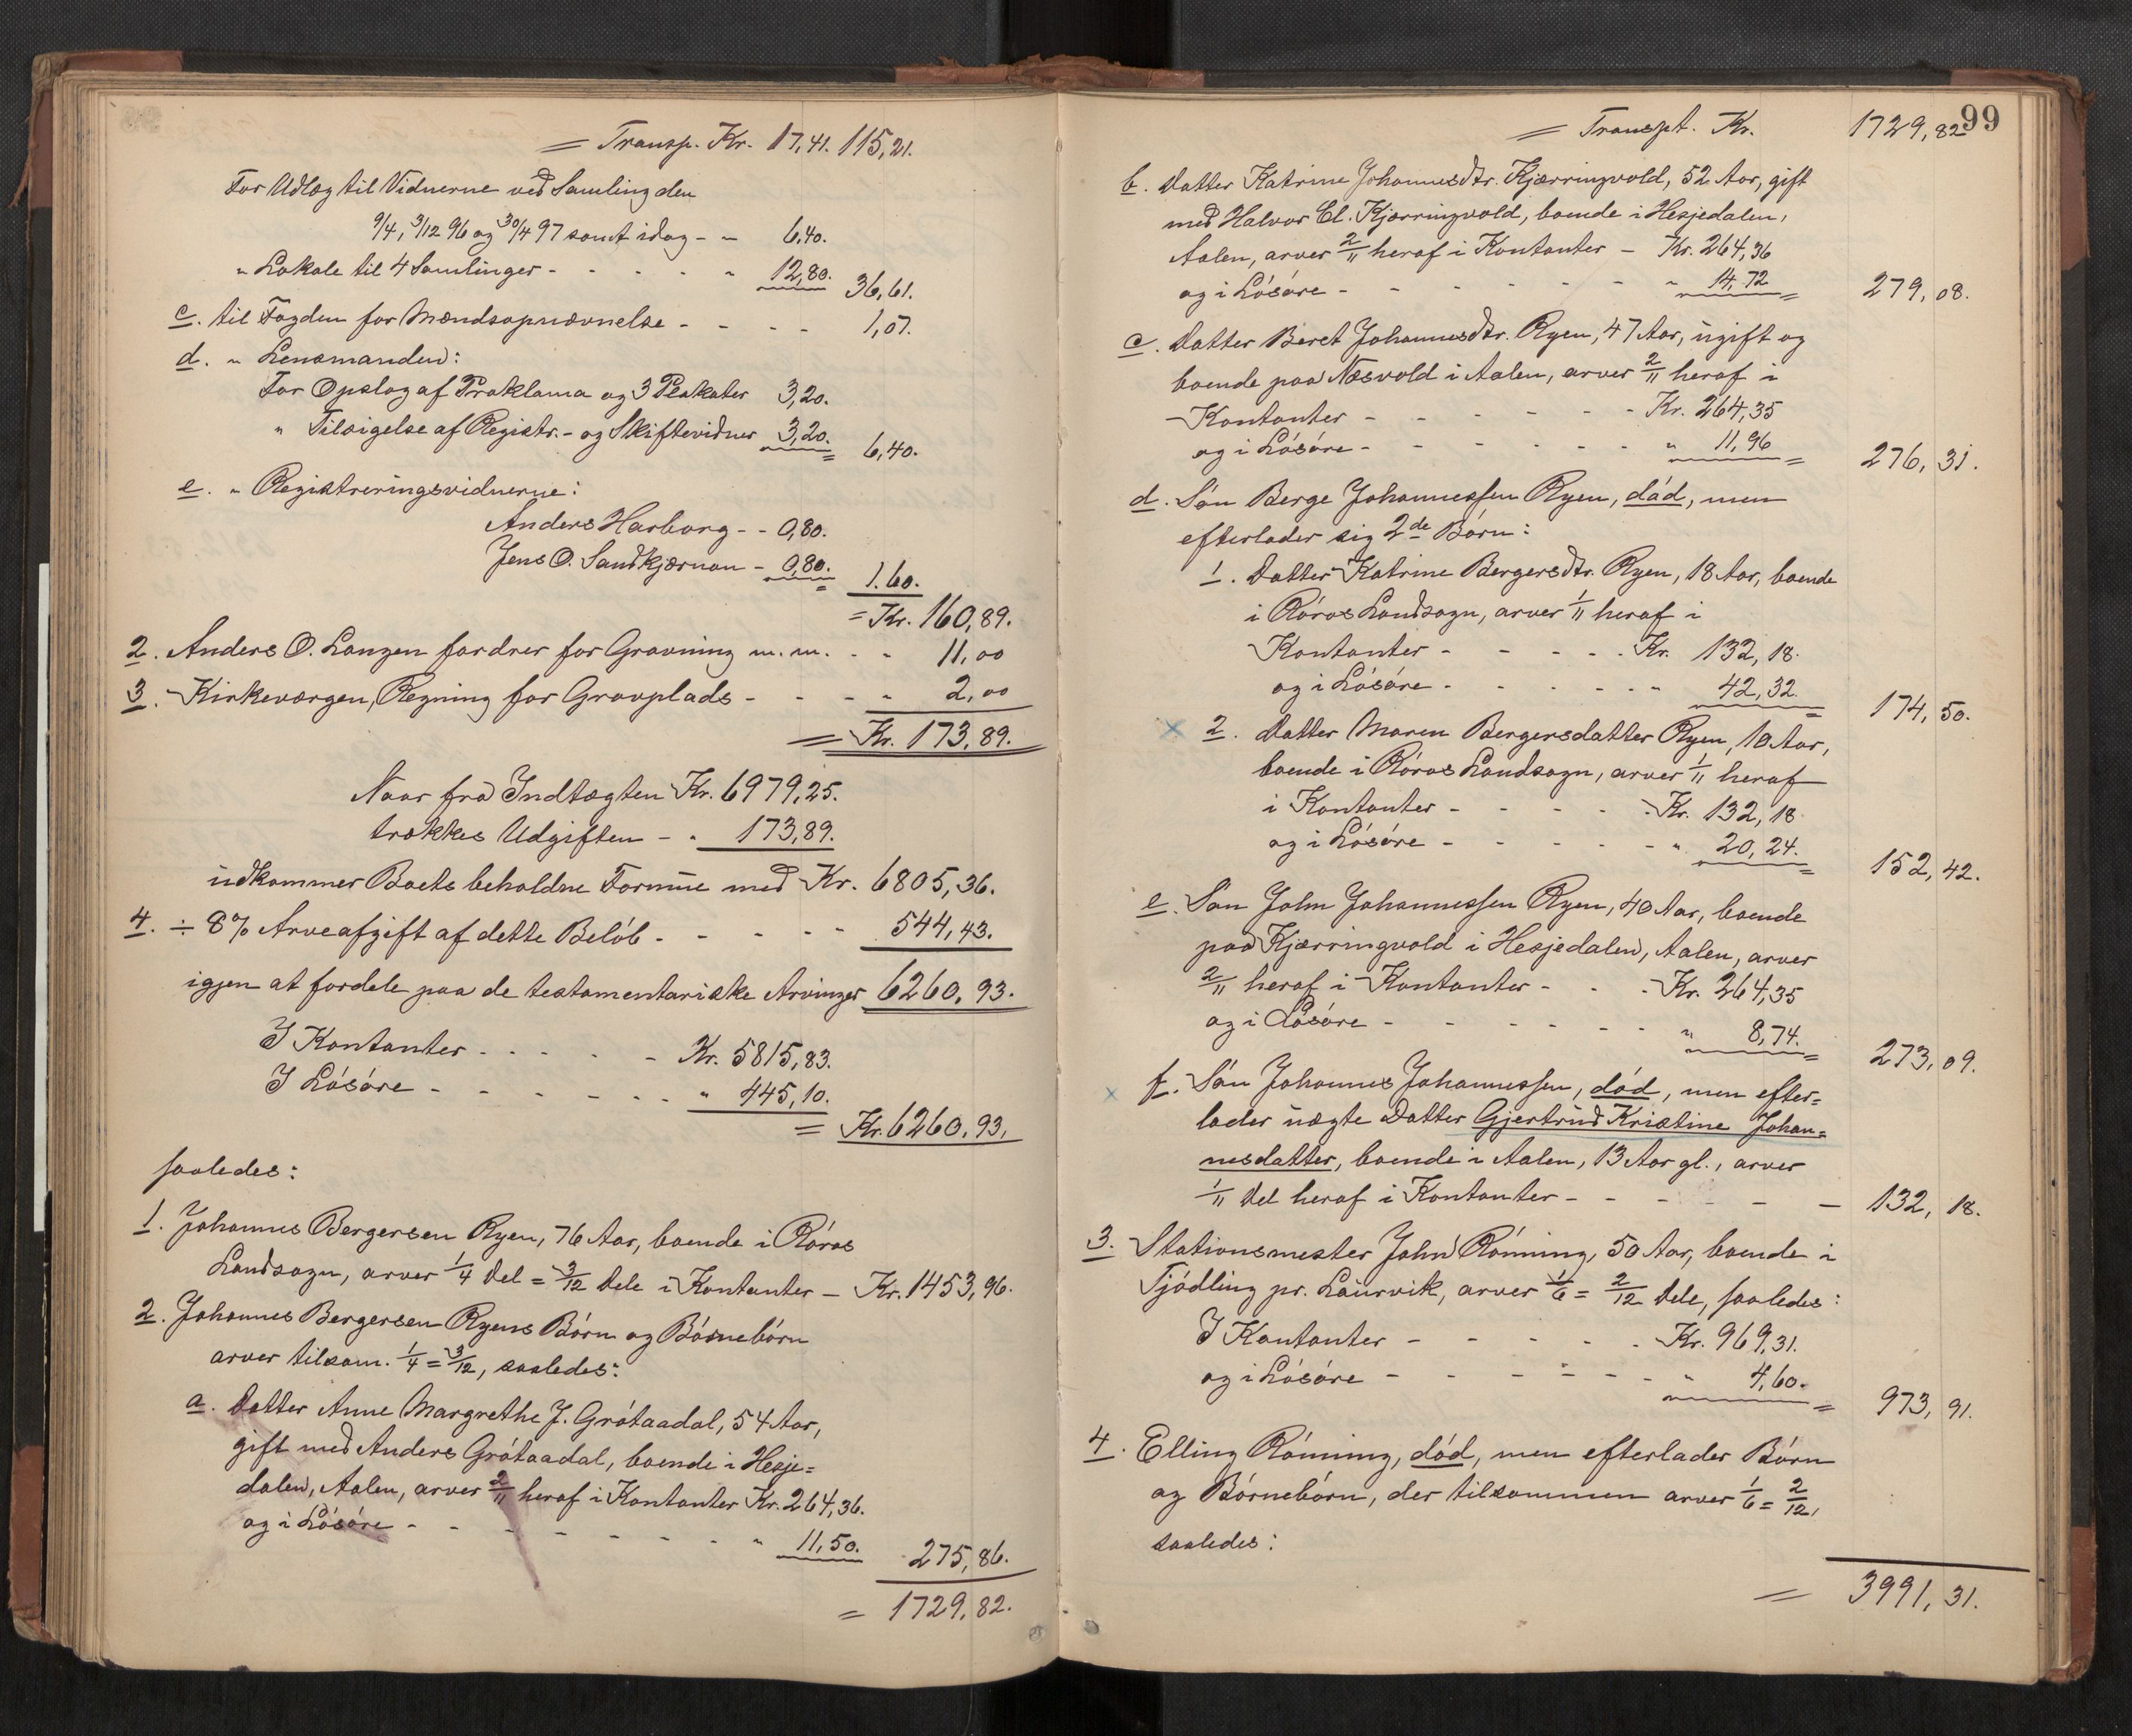 = Transp. Kr. 17,41. 115,21.
For Udlæg til Vidnerne ved Samling den
9/4, 3/12 96 og 30/4 97 samt idag - " 6,40.
" Lokale til 4 Samlinger - - - - " 12,80. 36,61.
c. til Fogden for Mændsopnævnelse - - - - 1,07.
d. " Lensmanden:
For Opslag af Proklama og 3 Plakater 3,20.
" Tilsigelse af Registr.- og Skiftevidner 3,20. 6,40.
e. " Registreringsvidnerne:
Anders Harborg - - 0,80.
Jens O. Sandkjærnan - 0,80. 1.60.
= Kr. 160,89.
2. Anders O. Langen fordrer for Gravning m.m. - - 11,00
3. Kirkeværgen, Regning for Gravplads - - - " 2,00
= Kr. 173,89.
Naar fra Indtægten Kr. 6979,25.
trækkes Udgiften - " 173,89.
udkommer Boets beholdne Formue med Kr. 6805,36.
4. ÷ 8% Arveafgift af dette Beløb - - - - - 544,43.
igjen at fordele paa de testamentariske Arvinger 6260,93.
I Kontanter - - - - - Kr. 5815,83.
I Løsøre - - - - - - " 445,10.
= Kr. 6260,93.
saaledes:
1. Johannes Bergersen Ryen, 76 Aar, boende i Røros
Landsogn, arver 1/4 Del = 3/12 Dele i Kontanter - Kr. 1453,96.
2. Johannes Bergersen Ryens Børn og Børnebørn
arver tilsam. 1/4 = 3/12, saaledes:
a. Datter Anne Margrethe J. Grøtaadal, 54 Aar,
gift med Anders Grøtaadal, boende i Hesje=
dalen, Aalen, arver 2/11 heraf i Kontanter Kr. 264,36.
og i Løsøre - - - - - - - " 11,50. 275,86.
= 1729,82.
99
= Transpt. Kr. 1729,82
b. Datter Katrine Johannesdtr. Kjærringvold, 52 Aar, gift
med Halvor El. Kjærringvold, boende i Hesjedalen,
Aalen, arver 2/11 heraf i Kontanter - Kr. 264,36
og i Løsøre - - - - - - " 14,72 = 279,08.
c. Datter Beret Johannesdtr. Ryen, 47 Aar, ugift og
boende paa Næsvold i Aalen, arver 2/11 heraf i
Kontanter - - - - - - Kr. 264,35
og i Løsøre - - - - - - " 11,96 = 276,31.
d. Søn Berge Johannessen Ryen, død, men
efterlader sig 2de Børn:
1. Datter Katrine Bergersdtr. Ryen, 18 Aar, boende
i Røros Landsogn, arver 1/11 heraf i
Kontanter - - - - - Kr. 132,18.
og i Løsøre - - - - - - " 42,32. = 174,50.
x 2. Datter Maren Bergersdatter Ryen, 10 Aar,
boende i Røros Landsogn, arver 1/11 heraf
i Kontanter - - - - - Kr. 132,18
og i Løsøre - - - - - " 20,24. = 152,42.
e. Søn John Johannessen Ryen, 40 Aar, boende
paa Kjærringvold i Hesjedalen, Aalen, arver
2/11 heraf i Kontanter - - - Kr. 264,35
og i Løsøre - - - - - - " 8,74. = 273,09.
x f. Søn Johannes Johannessen, død, men efter=
lader uægte Datter Gjertrud Kristine Johan=
nesdatter, boende i Aalen, 13 Aar gl., arver
1/11 Del heraf i Kontanter - - - - - - 132,18.
3. Stationsmester John Rønning, 50 Aar, boende i
Tjødling pr. Laurvik, arver 1/6 = 2/12 Dele, saaledes:
I Kontanter - - - - - Kr. 969,31.
og i Løsøre - - - - - - " 4,60. = 973,91.
4. Elling Rønning, død, men efterlader Børn
og Børnebørn, der tilsammen arver 1/6 = 2/12,
saaledes:
= 3991,31.